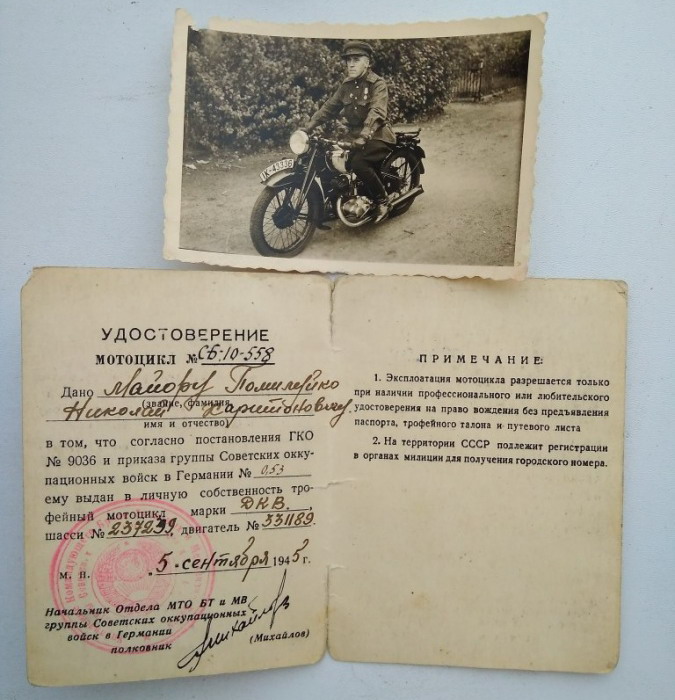 IK-43336
УДОСТОВЕРЕНИЕ
МОТОЦИКЛ № СБ-10-558
Дано Майору Помилуйко
(звание, фамилия,
Николай Харитоновичу
имя и отчество)
в том, что согласно постановления ГКО
№ 9036 и приказа группы Советских окку-
пационных войск в Германии № 053
ему выдан в личную собственность тро-
фейный мотоцикл марки ДКВ.
шасси № 237299, двигатель № 331189.
м. п. 5 сентября 1945 г.
Начальник Отдела МТО БТ и МВ
группы Советских оккупационных
войск в Германии
полковник Михайлов (Михайлов)
ПРИМЕЧАНИЕ:
1. Эксплоатация мотоцикла разрешается только
при наличии профессионального или любительского
удостоверения на право вождения без предъявления
паспорта, трофейного талона и путевого листа
2. На территории СССР подлежит регистрации
в органах милиции для получения городского номера.